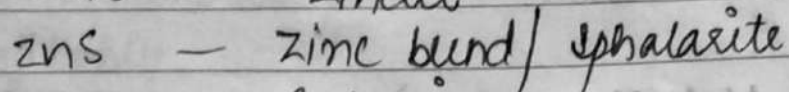 zns — zinc bund / sphalarite